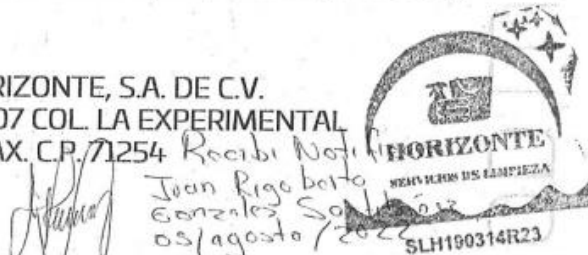 RIZONTE, S.A. DE C.V.
07 COL. LA EXPERIMENTAL
AX. C.P. 71254
Recibi Notifi
Juan Rigoberto
Gonzales
05/agosto/2022
HORIZONTE
SERVICIOS DE LIMPIEZA
SLH190314R23